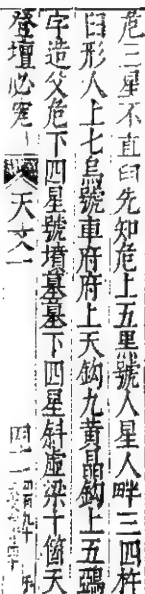 危三星不直曰先知危上五黑號人星人畔三四杵
臼形人上七烏號車府府上天鈎九黃晶鈎上五鵶
字造父危下四星號墳墓墓下四星斜虛梁十箇天
登壇必究 天文一